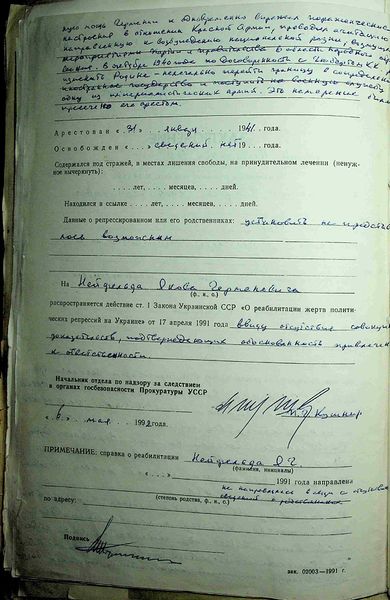 ную мощь Германии и одновременно выражал пораженческие
настроения в отношении Красной Армии, проводил агитацию
направленную к возбуждению национальной розни,
мероприятиями партии и правительства в области
В октябре 1940 года по договоренности с
изменить Родине – нелегально перейти границу в сопредельное
государство и поступить на военную службу в
одну из империалистических армий. Это намерение было
пресечено его арестом.
Арестован «31» января 1941 года.
Освобожден «сведений нет 19 года.
Содержался под стражей, в местах лишения свободы, на принудительном лечении (ненуж-
ное вычеркнуть):
. . . . лет, . . . . месяцев, . . . . дней.
Находился в ссылке . . . . лет, . . . . месяцев, . . . . дней.
Данные о репрессированном или его родственниках: установить не представи-
лось возможным
На Нейфельда Якова Германовича
(ф., и., о.)
распространяется действие ст. 1 Закона Украинской ССР «О реабилитации жертв полити-
ческих репрессий на Украине» от 17 апреля 1991 года ввиду отсутствия совокупности
доказательств, подтверждающих обоснованность привлечения
к ответственности.
Начальник отдела по надзору за следствием
в органах госбезопасности Прокуратуры УССР
П. Кушнир
«6» мая 1992 года.
ПРИМЕЧАНИЕ: справка о реабилитации Нейфельда Я.Г.
(фамилия, инициалы)
«. . . .» 1991 года направлена
не направлялась в связи с отсутствием
(степень родства, ф., и., о.) сведений о родственниках
по адресу:
Подпись
зак. 02003—1991 г.